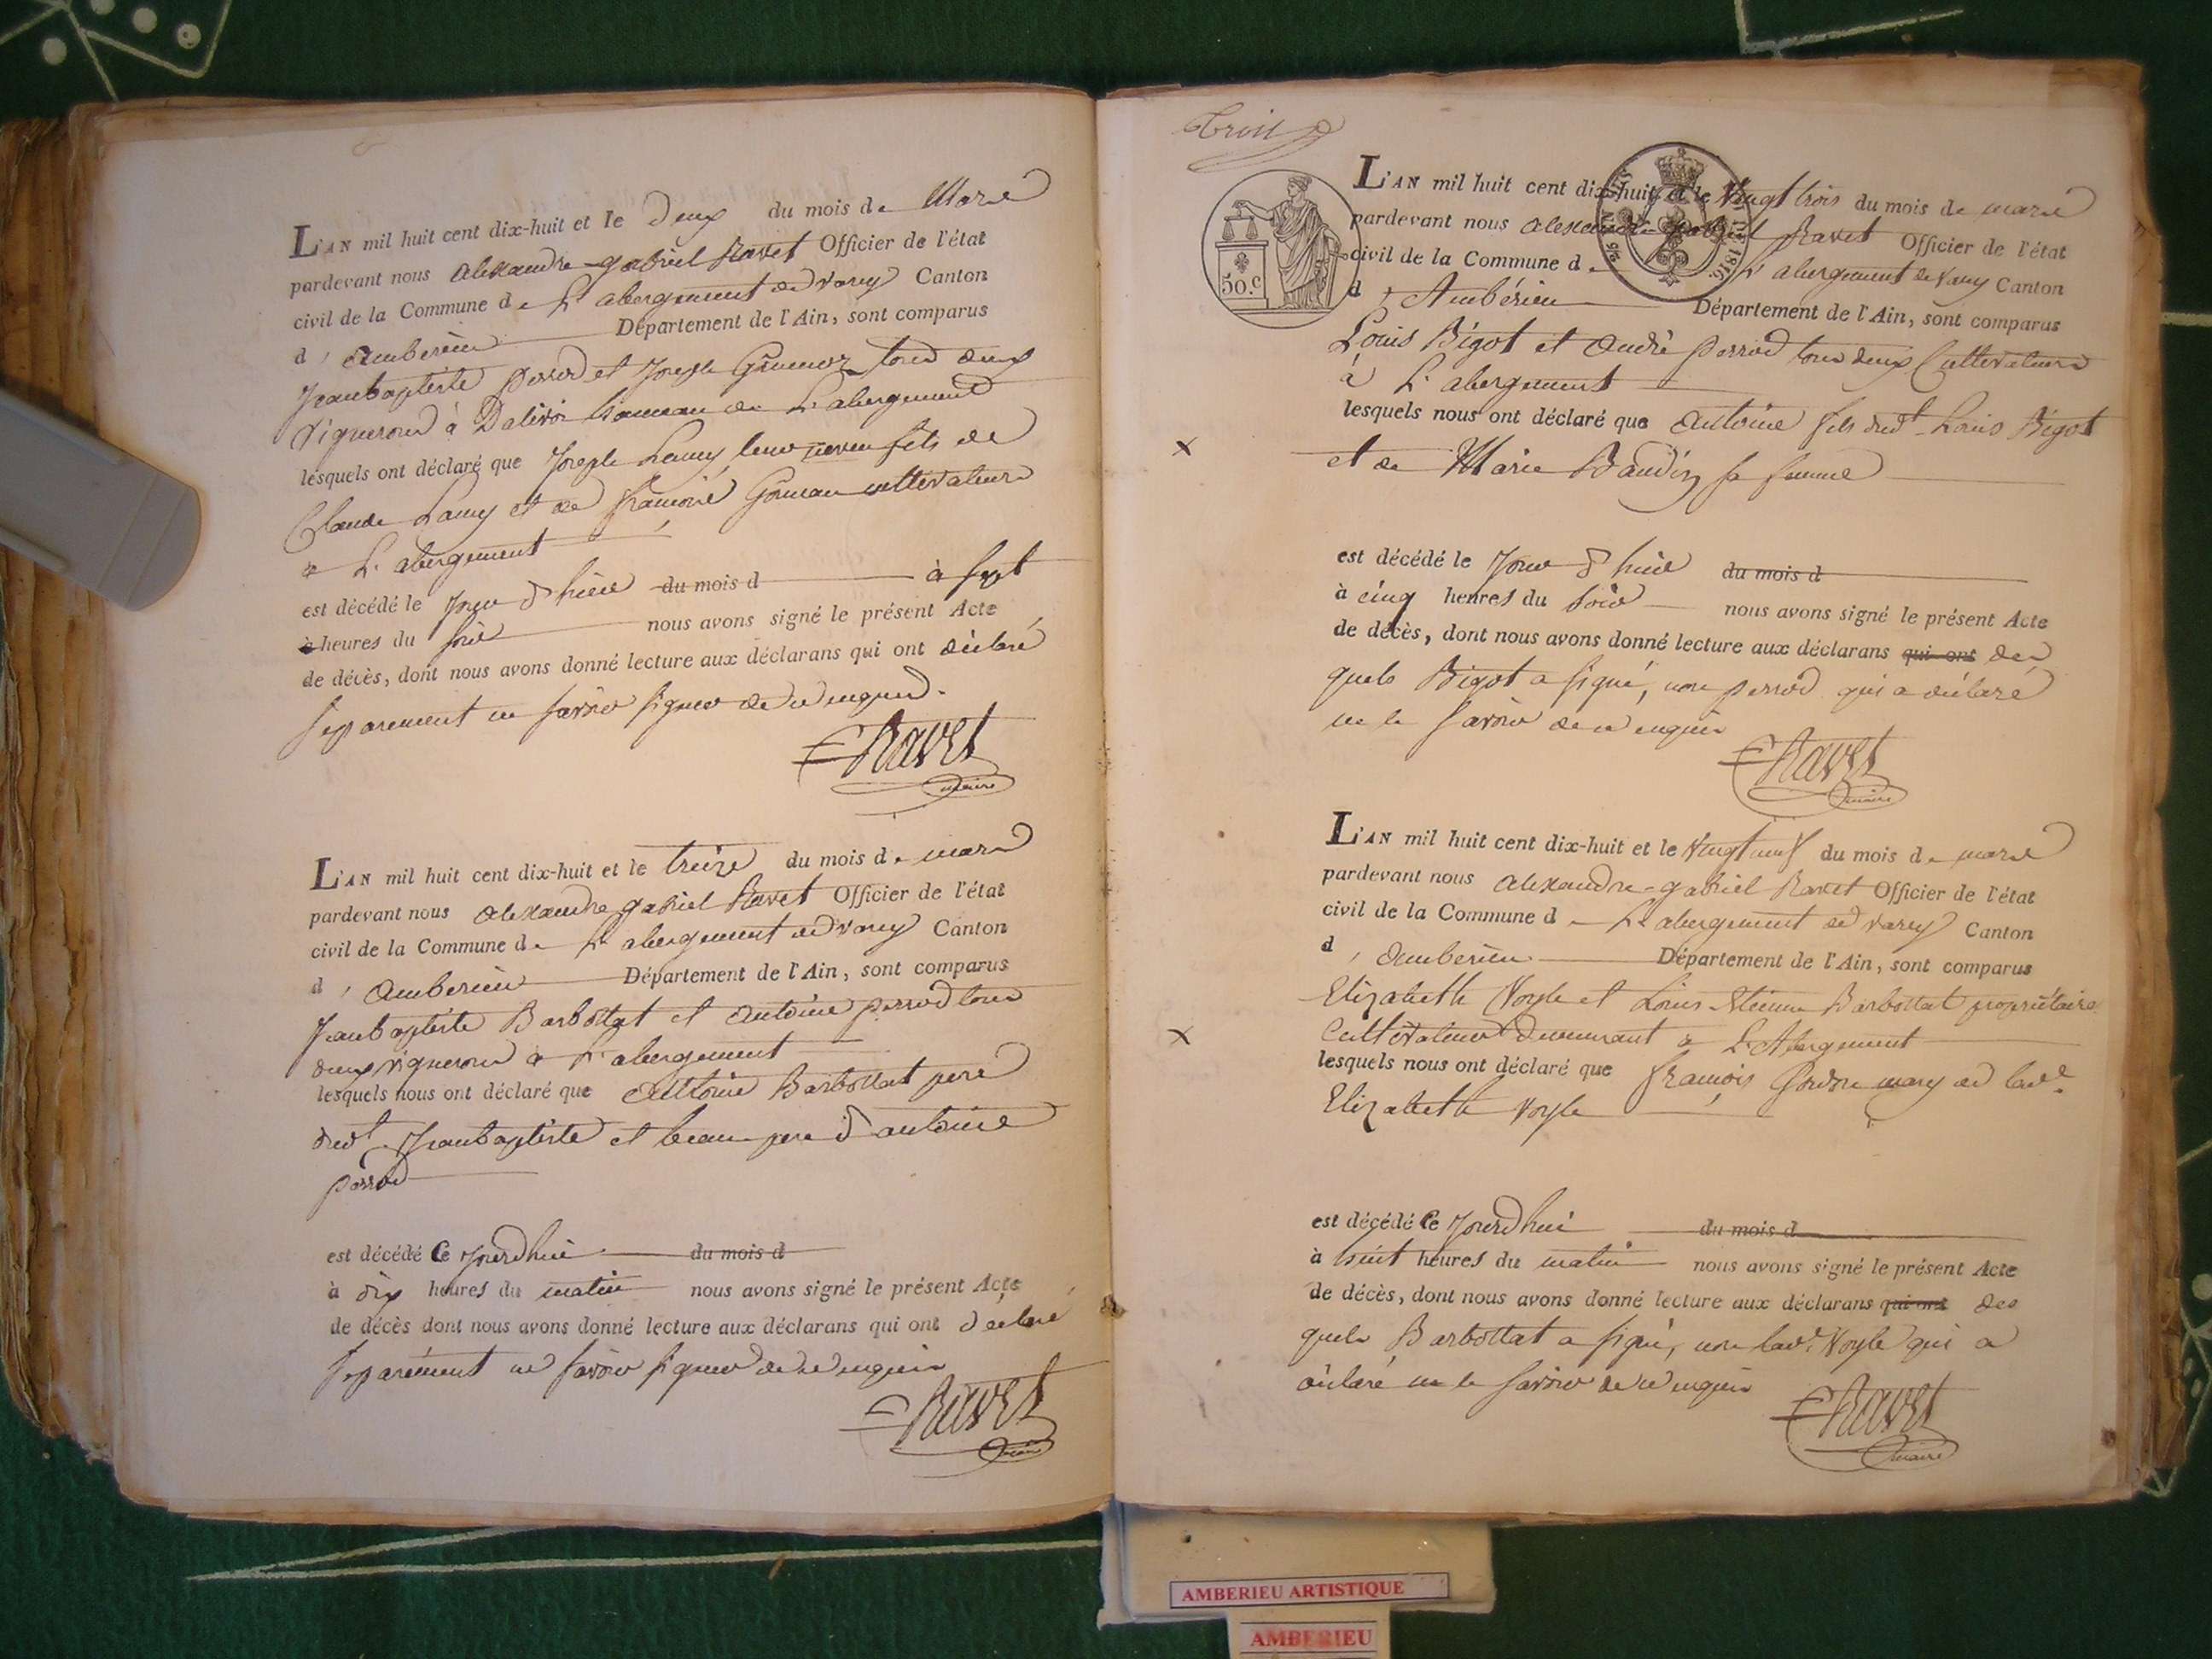 L'AN mil huit cent dix-huit et le deux du mois de Mars
pardevant nous alexandre-gabriel Ravet Officier de l'état
civil de la Commune de L'abergement de varey Canton
d'ambérieu Département de l'Ain, sont comparus
Jeanbaptiste perrod et Joseph tous deux
vignerons à hameau de L'abergement
lesquels ont déclaré que Joseph Lamy leur neveu fils de
Claude Lamy et de cultivateurs
a L'abergement
est décédé le Jour d'hier du mois d à sept
à heures du soir nous avons signé le présent Acte
de décès, dont nous avons donné lecture aux déclarans qui ont déclaré
séparément ne savoir signer de ce enquis.
Ravet
maire
L'AN mil huit cent dix-huit et le treize du mois de mars
pardevant nous alexandre gabriel Ravet Officier de l'état
civil de la Commune de L'abergement de varey Canton
d'ambérieu Département de l'Ain, sont comparus
Jeanbaptiste Barbollat et antoine perrod tous
deux vignerons a L'abergement
lesquels nous ont déclaré que antoine Barbollat pere
dudt Jeanbaptiste et beau pere d'antoine
perrod
est décédé Ce jourdhui du mois d
à dix heures du matin nous avons signé le présent Acte
de décès dont nous avons donné lecture aux déclarans qui ont déclaré
séparément ne savoir signer de ce enquis
Ravet
maire
50.c
1816
L'AN mil huit cent dix-huit et le Vingt trois du mois de mars
pardevant nous alexandre-gabriel Ravet Officier de l'état
civil de la Commune de L'abergement de varey Canton
d'Ambérieu Département de l'Ain, sont comparus
Louis Bigot et andré perrod tous deux Cultivateurs
à L'abergement
lesquels nous ont déclaré que antoine fils dudt Louis Bigot
et de Marie Baudin sa femme
est décédé le Jour d'hier du mois d
à cinq heures du soir nous avons signé le présent Acte
de décès, dont nous avons donné lecture aux déclarans qui ont des
quels Bigot a signé, non perrod qui a déclaré
ne le savoir de ce enquis
Ravet
maire
L'AN mil huit cent dix-huit et le Vingt neuf du mois de mars
pardevant nous alexandre-gabriel Ravet Officier de l'état
civil de la Commune de L'abergement de varey Canton
d'ambérieu Département de l'Ain, sont comparus
Elizabeth Voyle et Louis-Etienne Barbollat propriétaire
Cultivateur demeurant a L'Abergement
lesquels nous ont déclaré que françois mary de lade
Elizabeth Voyle
est décédé Ce jourd'hui du mois d
à huit heures du matin nous avons signé le présent Acte
de décès, dont nous avons donné lecture aux déclarans qui ont des
quels Barbollat a signé, non lade Voyle qui a
déclaré ne le savoir de ce enquis
Ravet
maire
AMBERIEU ARTISTIQUE
AMBERIEU